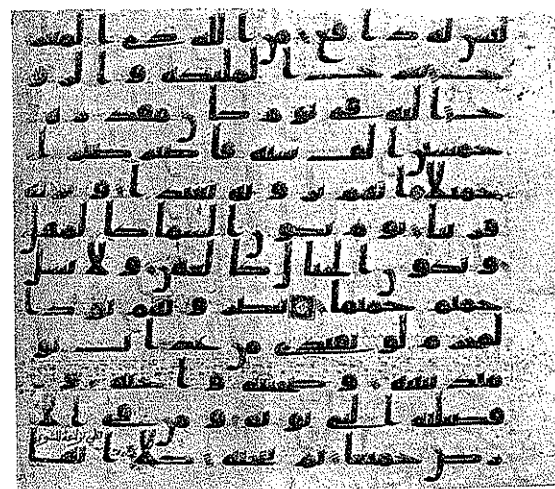 ليس له دافع من الله ذي المعـ
ـرج تعرج الملئكة والرو
ح اليه في يوم كان مقدره
خمسين الف سنة فاصبر صبرا
جميلا انهم يرونه بعيدا ونريه
قريبا يوم تكون السما كالمهل
وتكون الجبال كالعهن ولا يسل
حميم حميما يبصرونهم يود ا
لمجرم لو يفتدي من عذاب يو
مئذ ببنيه وصحبته واخيه و
فصيلته التي تويه ومن في الا
رض جميعا ثم ينجيه كلا انها